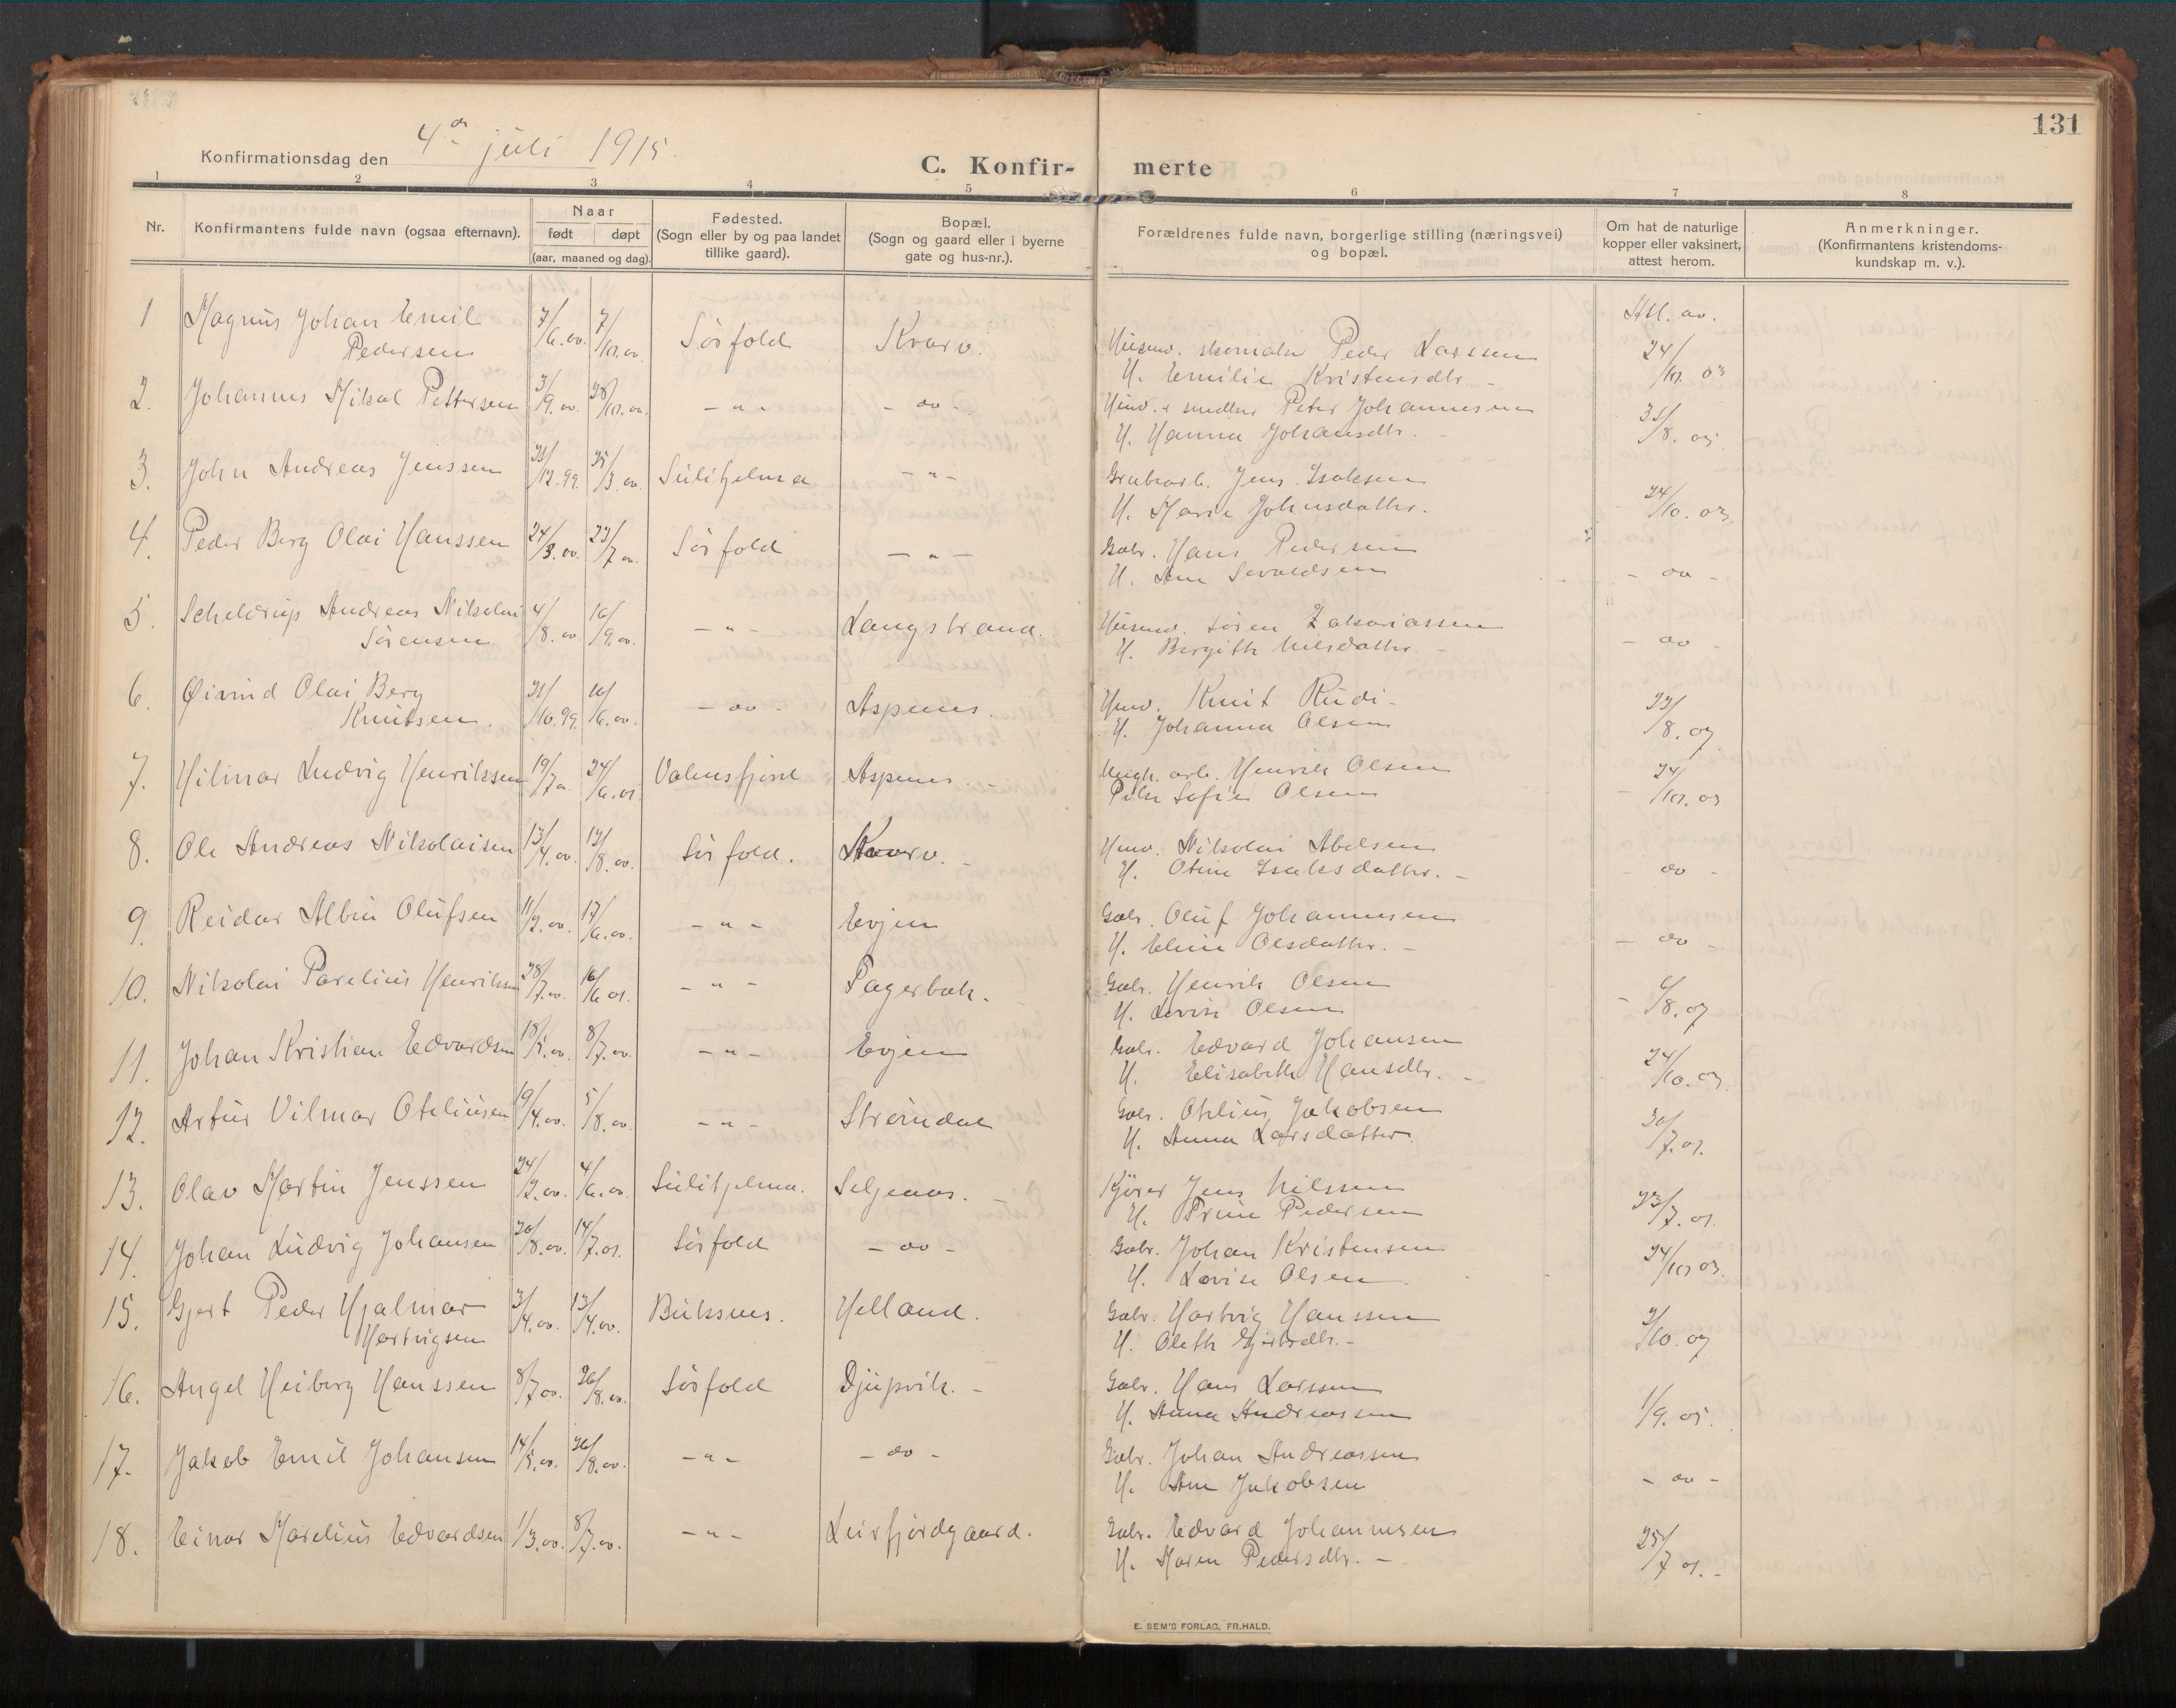 131
Konfirmationsdag den 4de juli 1915.
C. Konfir- merte
1 2 3 4 5 6 7 8
Nr.
Konfirmantens fulde navn (ogsaa efternavn).
Naar
født døpt
(aar, maaned og dag).
Fødested.
(Sogn eller by og paa landet
tillike gaard).
Bopæl.
(Sogn og gaard eller i byerne
gate og hus-nr.).
Forældrenes fulde navn, borgerlige stilling (næringsvei)
og bopæl.
Om hat de naturlige
kopper eller vaksinert,
attest herom.
Anmerkninger.
(Konfirmantens kristendoms-
kundskap m. v.).
1 Magnus Johan Emil 7/6.00. 7/10.00. Sørfold Kvarv. Husmd. skomaker Peder Larssen Att. av.
Pedersen H. Emilie Kristensdtr. - 24/10. 03
2. Johannes Mikal Pettersen 3/9.00. 28/10.00. - " - - do - Hmd. & smedlær Peter Johannesen
H. Hanna Johansdtr. - 31/8. 05.
3. John Andreas Jenssen 31/12.99. 25/3.00. Sulitjelma - " - Grubearb. Jens Isaksen
H. Marie Johnsdatter. 24/10. 03.
4. Peder Berg Olai Hanssen 24/3.00. 23/7.00. Sørfold - " - Gbr. Hans Pedersen
H. Ane Sevaldsen - do -
5. Scheldrup Andreas Nikolai 4/8.00. 16/9.00. - " - Langstrand. Husmd. Søren Zakariassen
Sørensen H. Bergitte Nilsdatter. - - do -
6. Øivind Olai Berg 31/10.99. 10/6.00. - do - Aspenes. Hmd. Knut Rudi -
Knutsen. H. Johanna Olsen 23/8. 07.
7. Hilmar Ludvig Henriksen 19/7.00. 24/6.01. Valnesfjord Aspenes. - Ungk. arb. Henrik Olsen
Pike Sofie Olsen 24/10. 03
8. Ole Andreas Nikolaisen 13/4.00. 12/8.00. Sørfold. Kvarv. - Hmd. Nikolai Abelsen
H. Otine Isaksdatter. - - do -
9. Reidar Albin Olufsen 11/2.00. 17/6.00. - " - Evjen Gbr. Oluf Johannesen
H. Eline Olsdatter. - - do -
10. Nikolai Parelius Henriksen 28/7.00. 16/6.01. - " - Fagerbak. Gbr. Henrik Olsen
H. Lovise Olsen - 6/8. 07
11. Johan Kristian Edvardsen 18/5.00. 8/7.00. - " - Evjen Gbr. Edvard Johansen
H. Elisabeth Hansdtr. - 24/10. 03.
12. Artur Vilmar Oteliusen 19/4.00. 5/8.00. - " - Strømdal Gbr. Otelius Jakobsen
H. Anna Larsdatter. 30/7. 01.
13. Olav Martin Jenssen 24/2.00. 4/6.00. Sulitjelma. Seljeaas. - Kjører Jens Nilssen
H. Trine Pedersen 23/7. 01.
14. Johan Ludvig Johansen 20/8.00. 14/7.01. Sørfold - do - Gbr. Johan Kristensen
H. Lovise Olsen. 24/10 03.
15. Gjert Peder Hjalmar 3/4.00. 13/4.00. Buksnes. Helland. Gbr. Hartvig Hanssen
Hartvigsen H. Oleth Gjertsdtr. - 2/10. 07
16. Angel Heiberg Hanssen 8/7.00. 26/8.00. Sørfold Djupvik. - Gbr. Hans Larssen
H. Anna Andreassen 1/9. 05.
17. Jakob Emil Johansen 14/5.00. 26/8.00. - " - - do - Gbr. Johan Andreassen
H. Ane Jakobsen - do -
18. Einar Marelius Edvardsen 1/3.00. 8/7.00. - " - Leirfjordgaard. Gbr. Edvard Johannesen
H. Maren Pedersdtr. - 25/7 01. -
E. SEM'S FORLAG, FR.HALD.